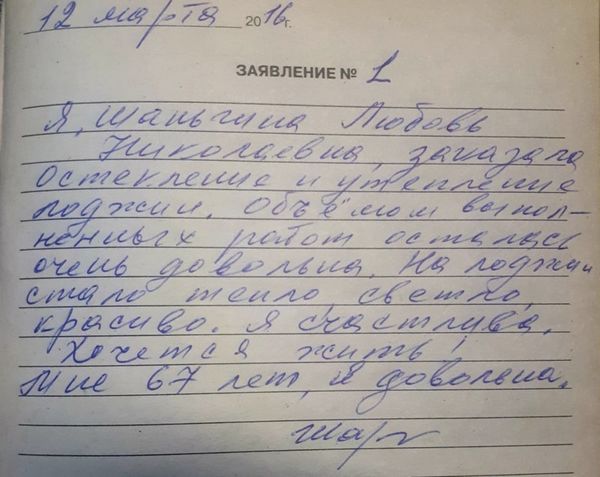 12 марта 2016г.
ЗАЯВЛЕНИЕ № 1
Я, Шаньгина Любовь
Николаевна, заказала
остекление и утепление
лоджии. Объёмом выпол-
ненных работ осталась
очень довольна. На лоджии
стало тепло, светло,
красиво. Я счастлива.
Хочется жить!
Мне 67 лет, я довольна.